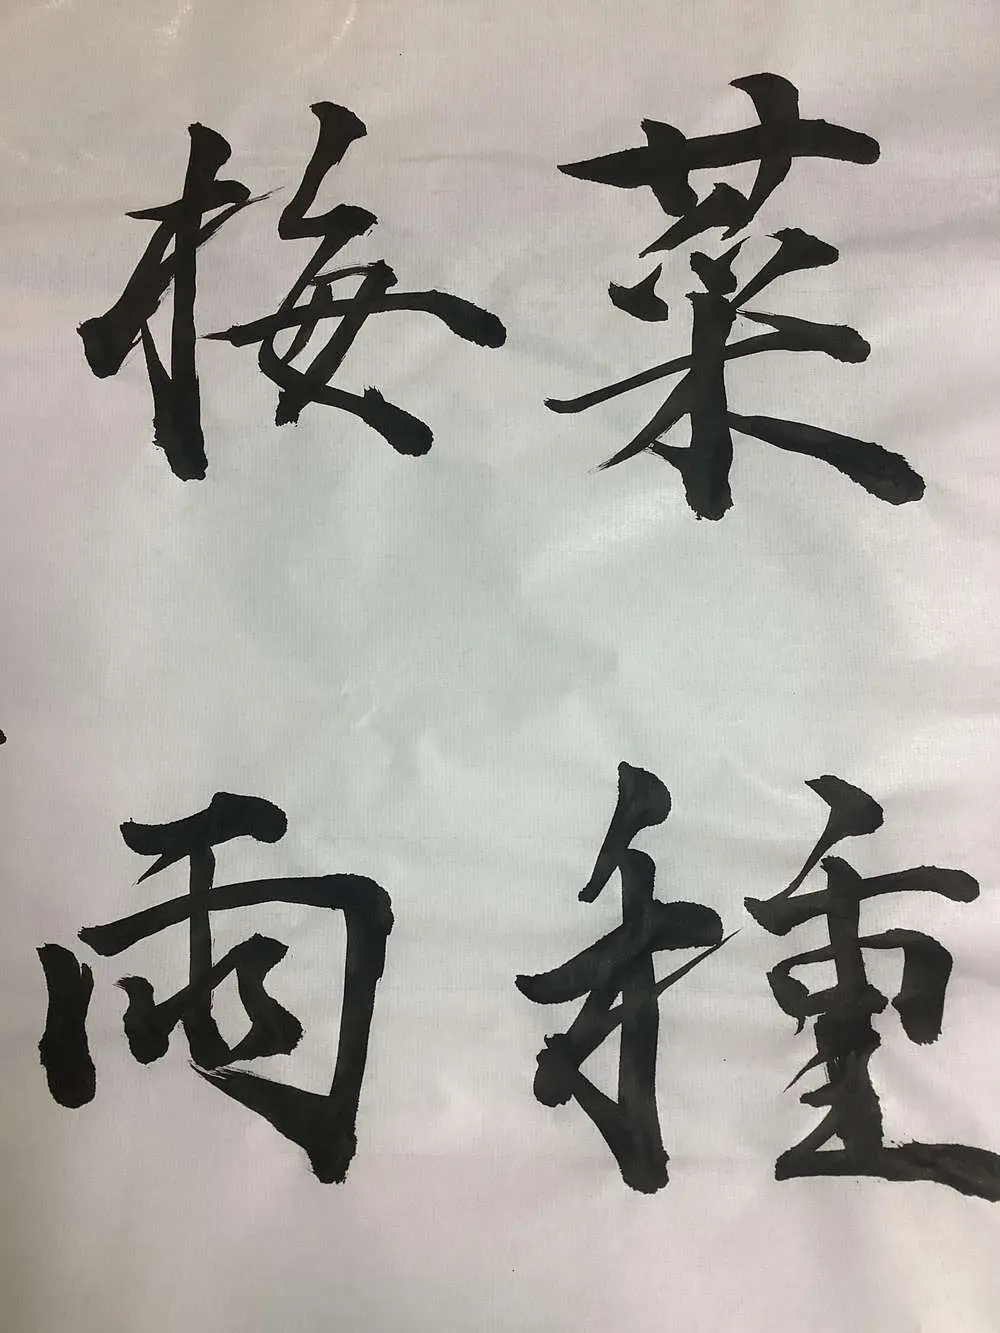 菜種
梅雨